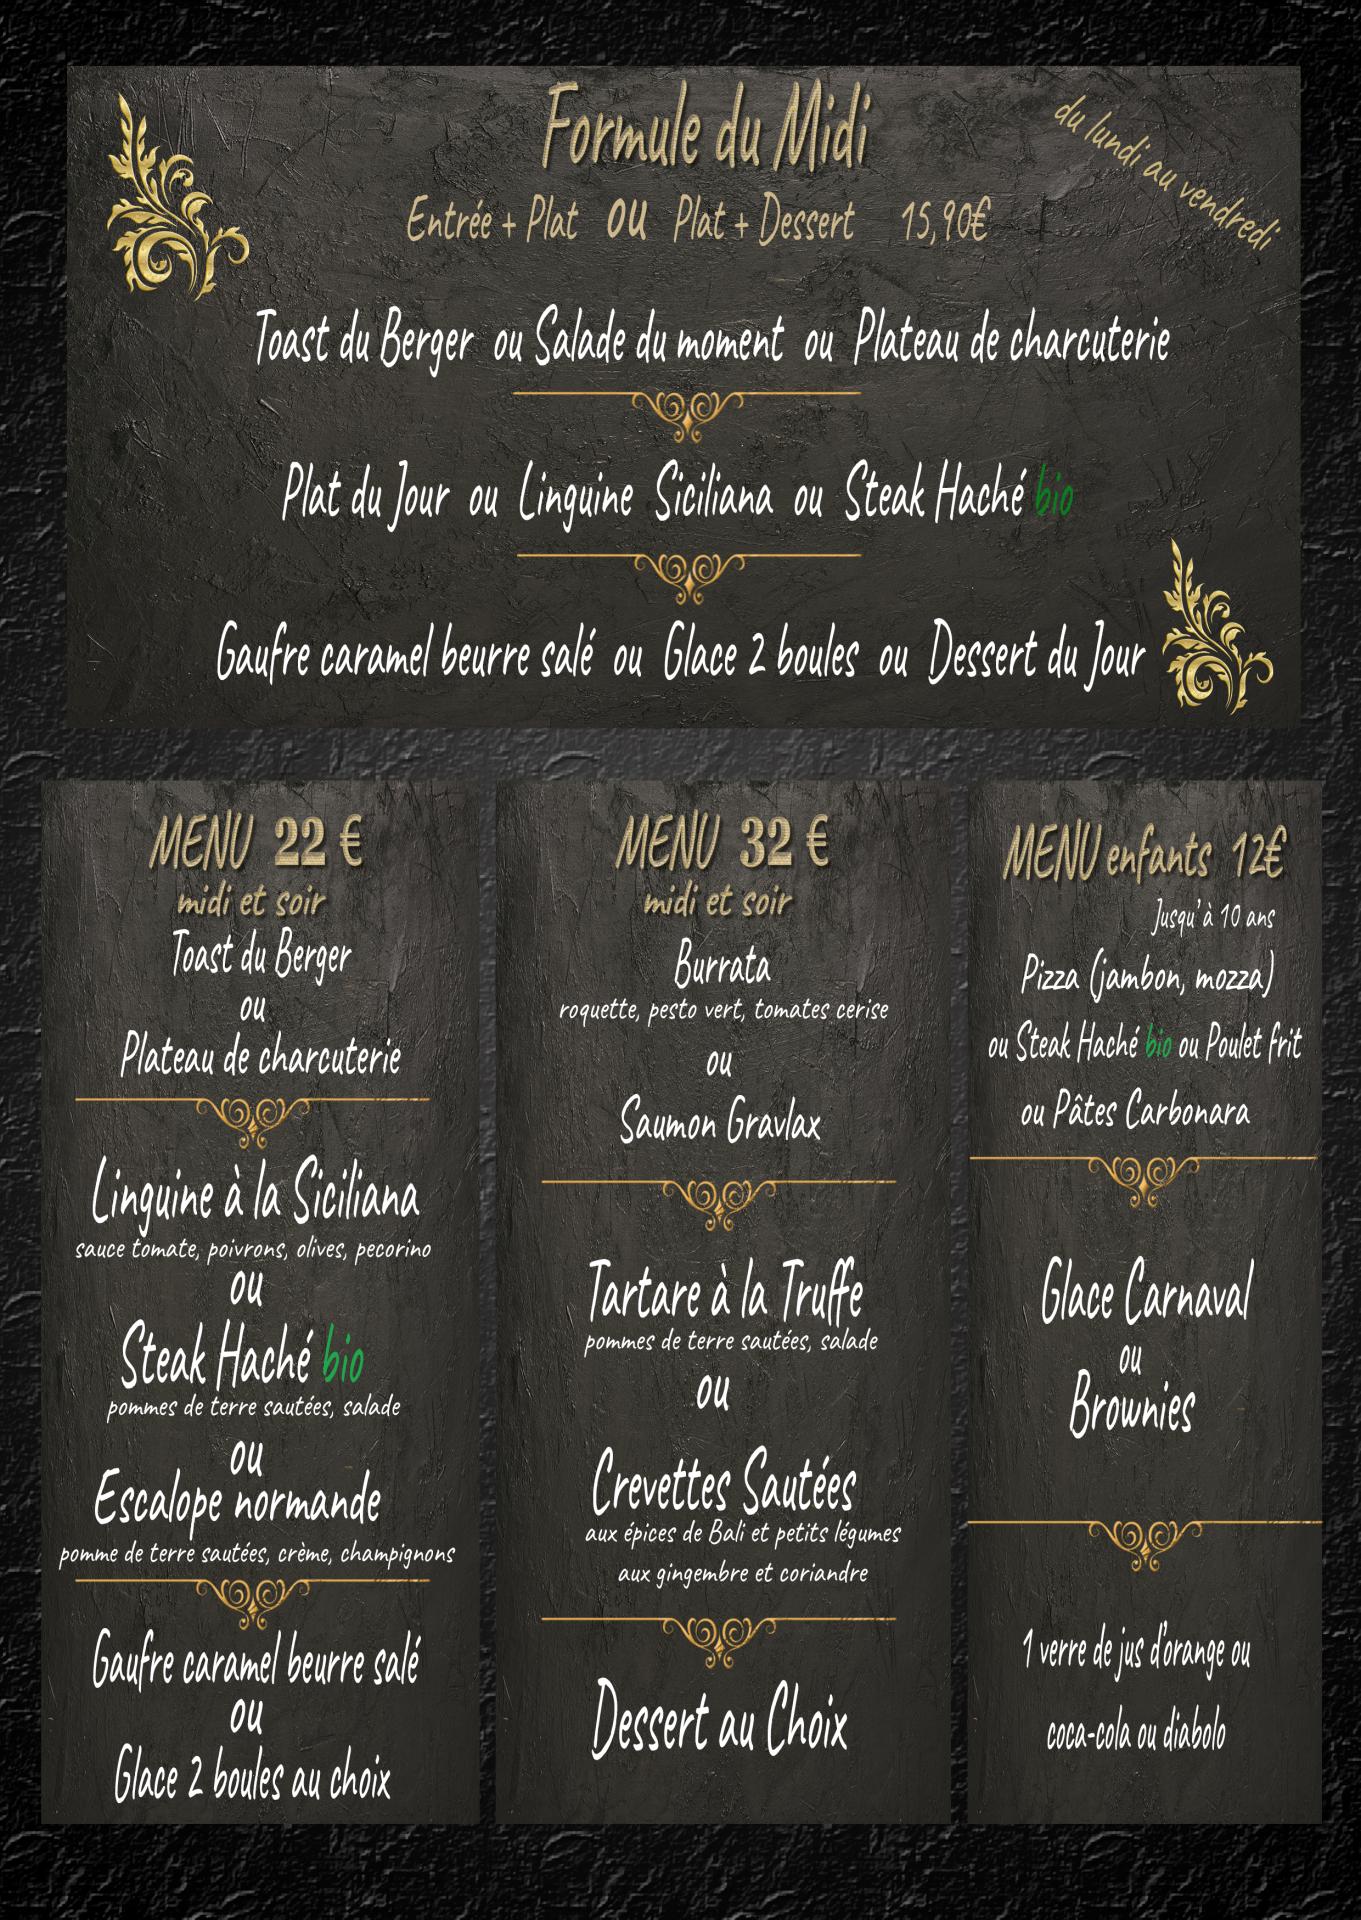 Formule du Midi
du lundi au vendredi
Entrée + Plat ou Plat + Dessert 15,90€
Toast du Berger ou Salade du moment ou Plateau de charcuterie
Plat du Jour ou Linguine Siciliana ou Steak Haché bio
Gaufre caramel beurre salé ou Glace 2 boules ou Dessert du Jour
MENU 22 €
midi et soir
Toast du Berger
ou
Plateau de charcuterie
Linguine à la Siciliana
sauce tomate, poivrons, olives, pecorino
ou
Steak Haché bio
pommes de terre sautées, salade
ou
Escalope normande
pomme de terre sautées, crème, champignons
Gaufre caramel beurre salé
ou
Glace 2 boules au choix
MENU 32 €
midi et soir
Burrata
roquette, pesto vert, tomates cerise
ou
Saumon Gravlax
Tartare à la Truffe
pommes de terre sautées, salade
ou
Crevettes Sautées
aux épices de Bali et petits légumes
aux gingembre et coriandre
Dessert au Choix
MENU enfants 12€
Jusqu'à 10 ans
Pizza (jambon, mozza)
ou Steak Haché bio ou Poulet frit
ou Pâtes Carbonara
Glace Carnaval
ou
Brownies
1 verre de jus d'orange ou
coca-cola ou diabolo